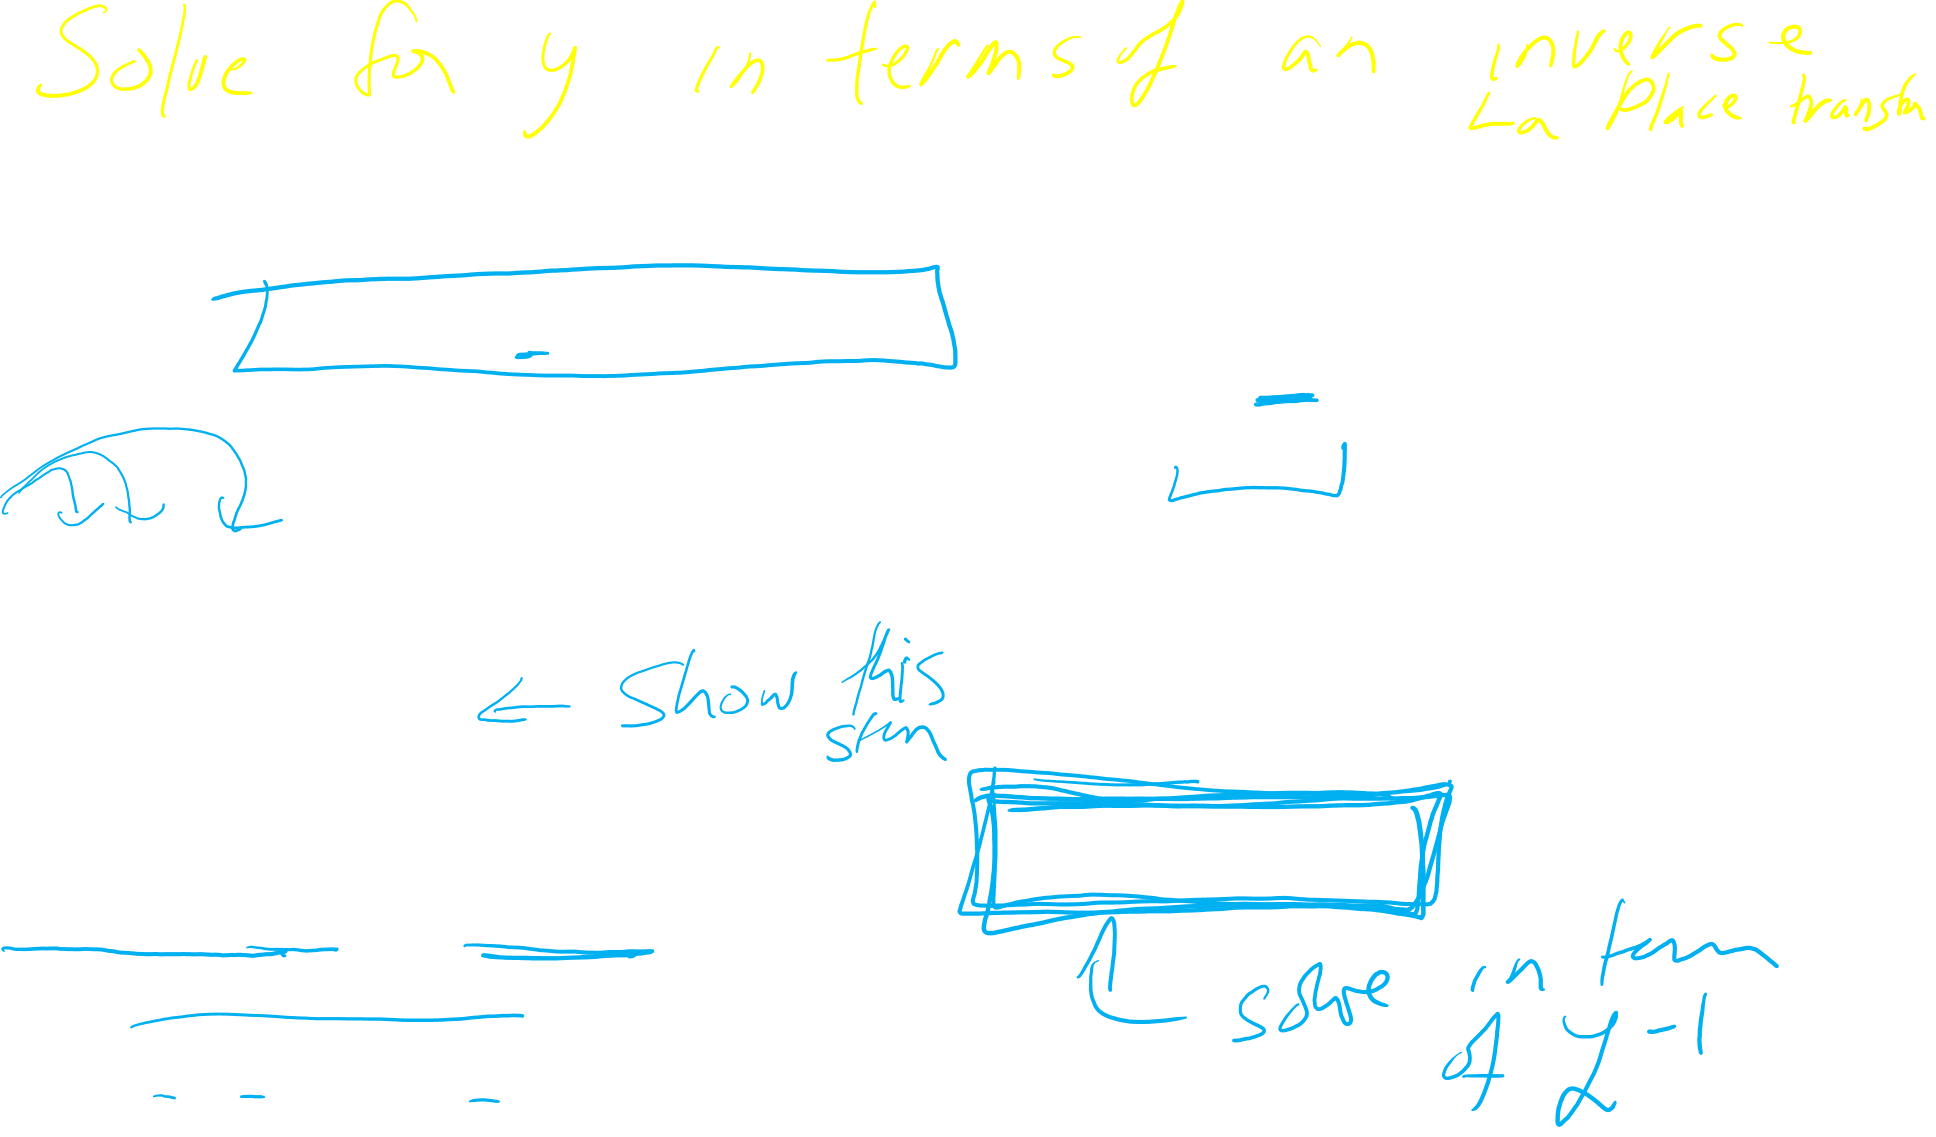 Solve for y in terms of an inverse
La Place transfm
← Show this
step
solve in terms
of ℒ⁻¹